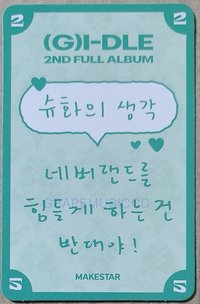 2 2
(G)I-DLE
2ND FULL ALBUM
슈화의 생각
네버랜드를
GRAPEMUSICCD
힘들게 하는 건
반대야!
MAKESTAR
2 2